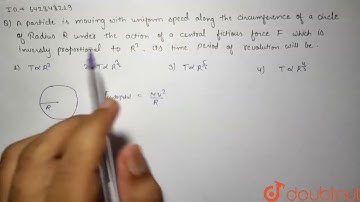 ID:- 642848219
Q) A particle is moving with uniform speed along the circumference of a circle
of Radius R under the action of a central fictious force F which is
inversly proportional to R³. Its time period of revolution will be.
1) T ∝ R²
T ∝ R
3) T ∝ R
4) T ∝ R
R
= mv²/R
doubtnut